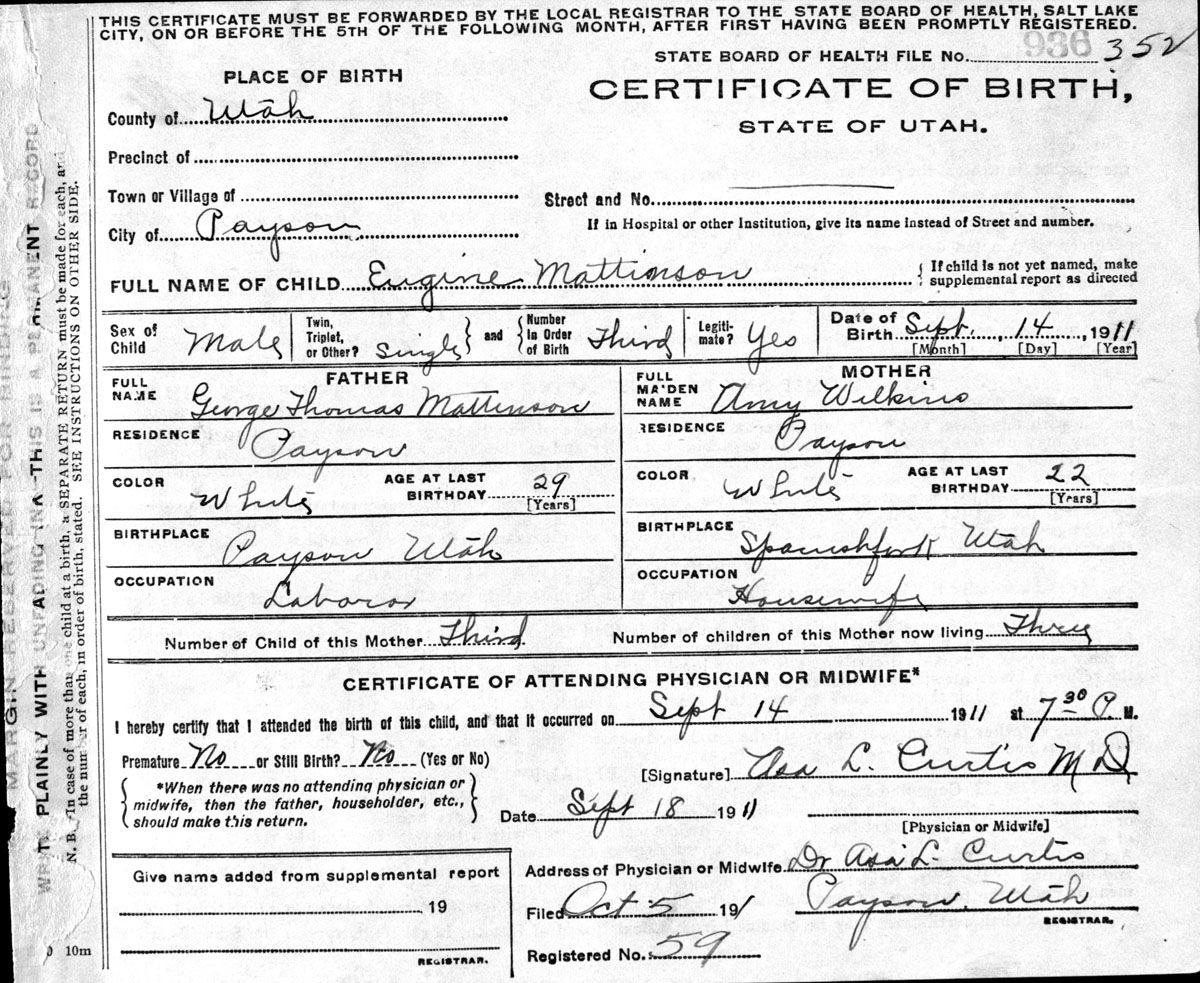 THIS CERTIFICATE MUST BE FORWARDED BY THE LOCAL REGISTRAR TO THE STATE BOARD OF HEALTH, SALT LAKE
CITY, ON OR BEFORE THE 5TH OF THE FOLLOWING MONTH, AFTER FIRST HAVING BEEN PROMPTLY REGISTERED.
STATE BOARD OF HEALTH FILE No. 936 352
PLACE OF BIRTH
CERTIFICATE OF BIRTH,
STATE OF UTAH.
County of Utah
Precinct of
Town or Village of
Street and No.
City of Payson
If in Hospital or other Institution, give its name instead of Street and number.
FULL NAME OF CHILD Eugine Mattinson
{ If child is not yet named, make
supplemental report as directed
Sex of Child Male
Twin, Triplet, or Other? Single } and { Number in Order of Birth Third
Legiti-mate? Yes
Date of Birth Sept. 14, 1911
[Month] [Day] [Year]
FATHER
MOTHER
FULL NAME George Thomas Mattinson
FULL MAIDEN NAME Amy Wilkins
RESIDENCE Payson
RESIDENCE Payson
COLOR White AGE AT LAST BIRTHDAY 29 [Years]
COLOR White AGE AT LAST BIRTHDAY 22 [Years]
BIRTHPLACE Payson Utah
BIRTHPLACE Spanishfork Utah
OCCUPATION Laboror
OCCUPATION Housewife
Number of Child of this Mother Third
Number of children of this Mother now living Three
CERTIFICATE OF ATTENDING PHYSICIAN OR MIDWIFE*
I hereby certify that I attended the birth of this child, and that it occurred on Sept 14 1911 at 7 30 P. M.
Premature No or Still Birth? No (Yes or No)
[Signature] Asa L. Curtis M D
*When there was no attending physician or
midwife, then the father, householder, etc.,
should make this return.
Date Sept 18 1911
[Physician or Midwife]
Give name added from supplemental report
19
REGISTRAR.
Address of Physician or Midwife Dr Asa L. Curtis
Filed Oct 5 191 Payson, Utah
REGISTRAR.
Registered No. 59
MARGIN RESERVED FOR BINDING
WRITE PLAINLY WITH UNFADING INK--THIS IS A PERMANENT RECORD
N. B.--In case of more than one child at a birth, a SEPARATE RETURN must be made for each, and
the number of each, in order of birth, stated. SEE INSTRUCTIONS ON OTHER SIDE.
10m